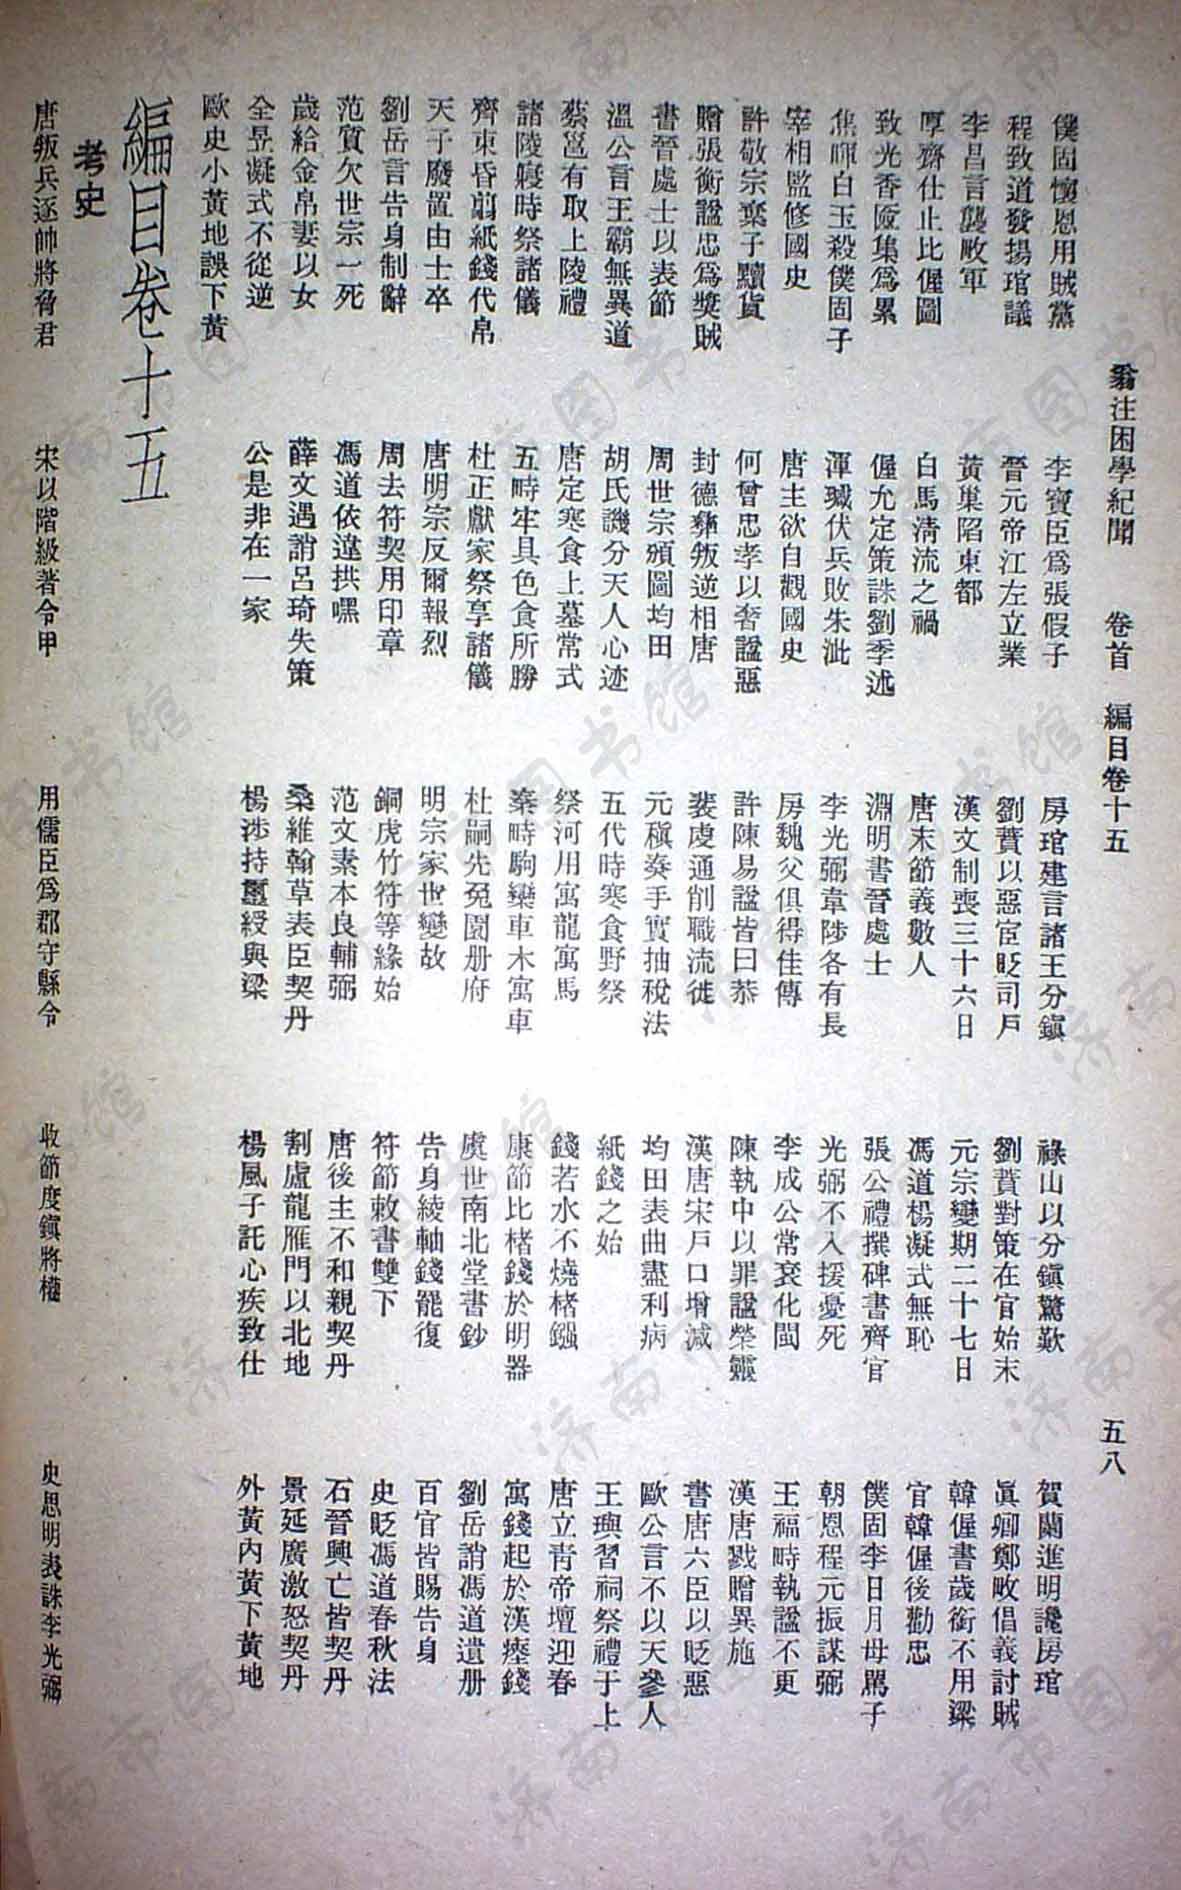 翁注困學紀聞 卷首 編目卷十五 五八
僕固懷恩用賊黨 李寶臣爲張假子 房琯建言諸王分鎭 祿山以分鎭驚歎 賀蘭進明讒房琯
程致道發揚琯議 晉元帝江左立業 劉蕡以惡宦貶司戶 劉蕡對策在官始末 眞卿鄭畋倡義討賊
李昌言襲畋軍 黃巢陷東都 漢文制喪三十六日 元宗變期二十七日 韓偓書歲銜不用梁
厚齋仕止比偓圖 白馬清流之禍 唐末節義數人 馮道楊凝式無恥 官韓偓後勸忠
致光香匳集爲累 偓允定策誅劉季述 淵明書晉處士 張公禮撰碑書齊官 僕固李日月母罵子
焦暉白玉殺僕固子 渾瑊伏兵敗朱泚 李光弼韋陟各有長 光弼不入援憂死 朝恩程元振謀弼
宰相監修國史 唐主欲自觀國史 房魏父俱得佳傳 李成公常袞化閩 王福畤執諡不更
許敬宗棄子黷貨 何曾忠孝以奢諡惡 許陳易諡皆曰恭 陳執中以罪諡榮靈 漢唐戮贈異施
贈張衡諡忠爲獎賊 封德彝叛逆相唐 裴虔通削職流徙 漢唐宋戶口增減 書唐六臣以貶惡
書晉處士以表節 周世宗頒圖均田 元稹奏手實抽稅法 均田表曲盡利病 歐公言不以天參人
溫公言王霸無異道 胡氏譏分天人心迹 五代時寒食野祭 紙錢之始 王璵習祠祭禮于上
蔡邕有取上陵禮 唐定寒食上墓常式 祭河用寓龍寓馬 錢若水不燒楮鏹 唐立靑帝壇迎春
諸陵寢時祭諸儀 五畤牢具色食所勝 秦畤駒欒車木寓車 康節比楮錢於明器 寓錢起於漢瘞錢
齊東昏翦紙錢代帛 杜正獻家祭享諸儀 杜嗣先兔園册府 虞世南北堂書鈔 劉岳誚馮道遺册
天子廢置由士卒 唐明宗反爾報烈 明宗家世變故 告身綾軸錢罷復 百官皆賜告身
劉岳言告身制辭 周去符契用印章 銅虎竹符等緣始 符節敕書雙下 史貶馮道春秋法
范質欠世宗一死 馮道依違拱嘿 范文素本良輔弼 唐後主不和親契丹 石晉興亡皆契丹
歲給金帛妻以女 薛文遇誚呂琦失策 桑維翰草表臣契丹 割盧龍雁門以北地 景延廣激怒契丹
全昱凝式不從逆 公是非在一家 楊涉持璽綬與梁 楊風子託心疾致仕 外黃內黃下黃地
歐史小黃地誤下黃
編目卷十五
考史
唐叛兵逐帥將脅君 宋以階級著令甲 用儒臣爲郡守縣令 收節度鎭將權 史思明裘誅李光弼
济南市图书馆